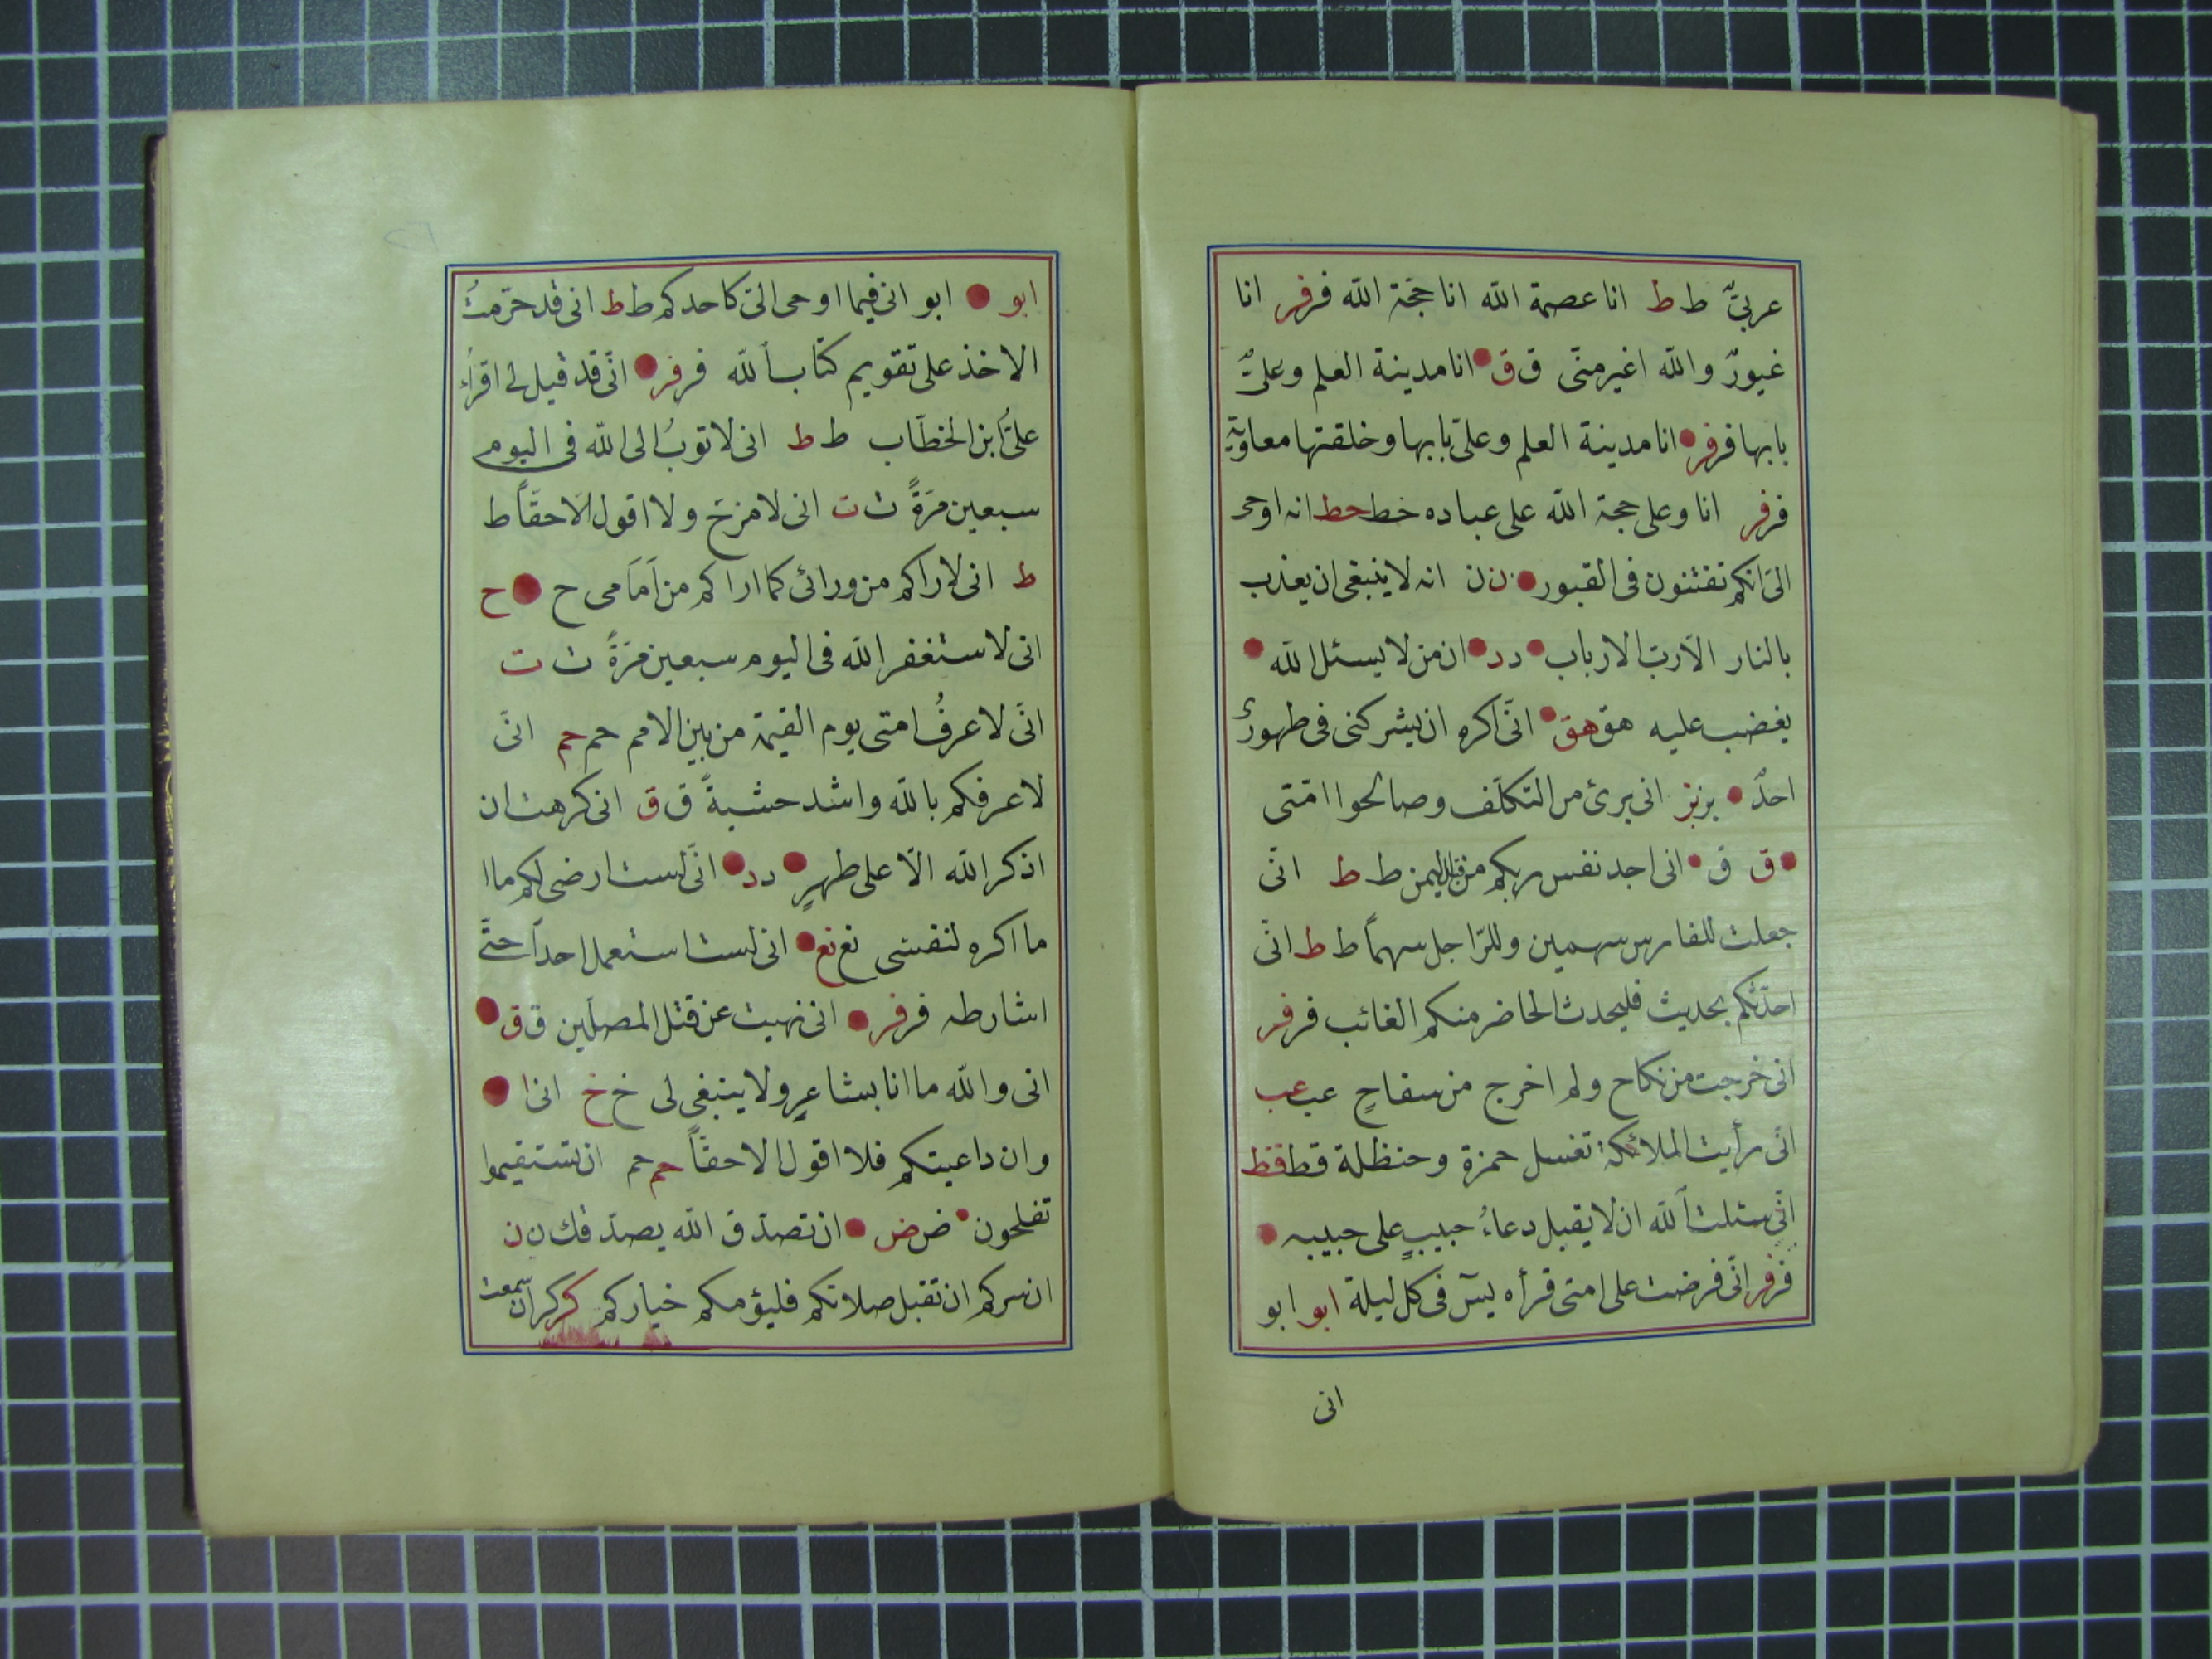 عربىٌّ ط ط انا عصمة الله انا حجّة الله فر فر انا
غيورٌ والله اغير منّى ق ق انا مدينة العلم وعلىٌّ
بابها فر فر انا مدينة العلم وعلىّ بابها وخلقتها معاوية
فر فر انا وعلى حجة الله على عباده خط خط انه اوحى
الىّ انكم تفتنون فى القبور ن ن انه لا ينبغى ان يعذب
بالنار الّا ربّ الارباب د د ان من لا يسئل الله
يغضب عليه هق هق انّى اكره ان يشركنى فى طهورى
احدٌ بز بز انى برئ من التكلّف وصالحوا امّتى
ق ق انى اجد نفس ربكم من قبل اليمن ط ط انّى
جعلت للفارس سهمين وللرّاجل سهماً ط ط انّى
احدّثكم بحديث فليحدث الحاضر منكم الغائب فر فر
انى خرجت من نكاح ولم اخرج من سفاحٍ عب عب
انّى رأيت الملائكة تغسل حمزة وحنظلة قط قط
انّى سئلت الله ان لا يقبل دعاءُ حبيبٍ على حبيبه
فر فر انّى فرضت على امتى قرأه يسٓ فى كل ليلة ابو ابو
انى
ابو ابو انى فيما اوحى الىّ كاحدكم ط ط انى قد حرّمتُ
الاخذ على تقويم كتاب الله فر فر انّى قد قيل لى اقرأ
على ابن الخطّاب ط ط انى لاتوبُ الى الله فى اليوم
سبعين مرّةً ت ت انى لامزح ولا اقول الّا حقّاً ط
ط انى لاراكم من ورائى كما اراكم من اَمَامى ح ح
انى لاستغفر الله فى اليوم سبعين مرّةً ت ت
انّى لاعرفُ امتى يوم القيمة من بين الامم حم حم انّى
لاعرفكم بالله واشد خشيةً ق ق انى كرهت ان
اذكر الله الّا على طهرٍ د د انّى لست ارضى لكم ما ا
ما اكره لنفسى نع نع انى لست استعمل احداً حتّى
اشارطه فر فر انى نهيت عن قتل المصلّين ق ق
انى والله ما انا بشاعرٍ ولا ينبغى لى خ خ انا
وان داعيتكم فلا اقول الا حقّاً حم حم ان تستقيموا
تفلحون ض ض ان تصدّق الله يصدّقك ن ن
ان سركم ان تقبل صلاتكم فليؤمكم خياركم كر كر ان سمعت